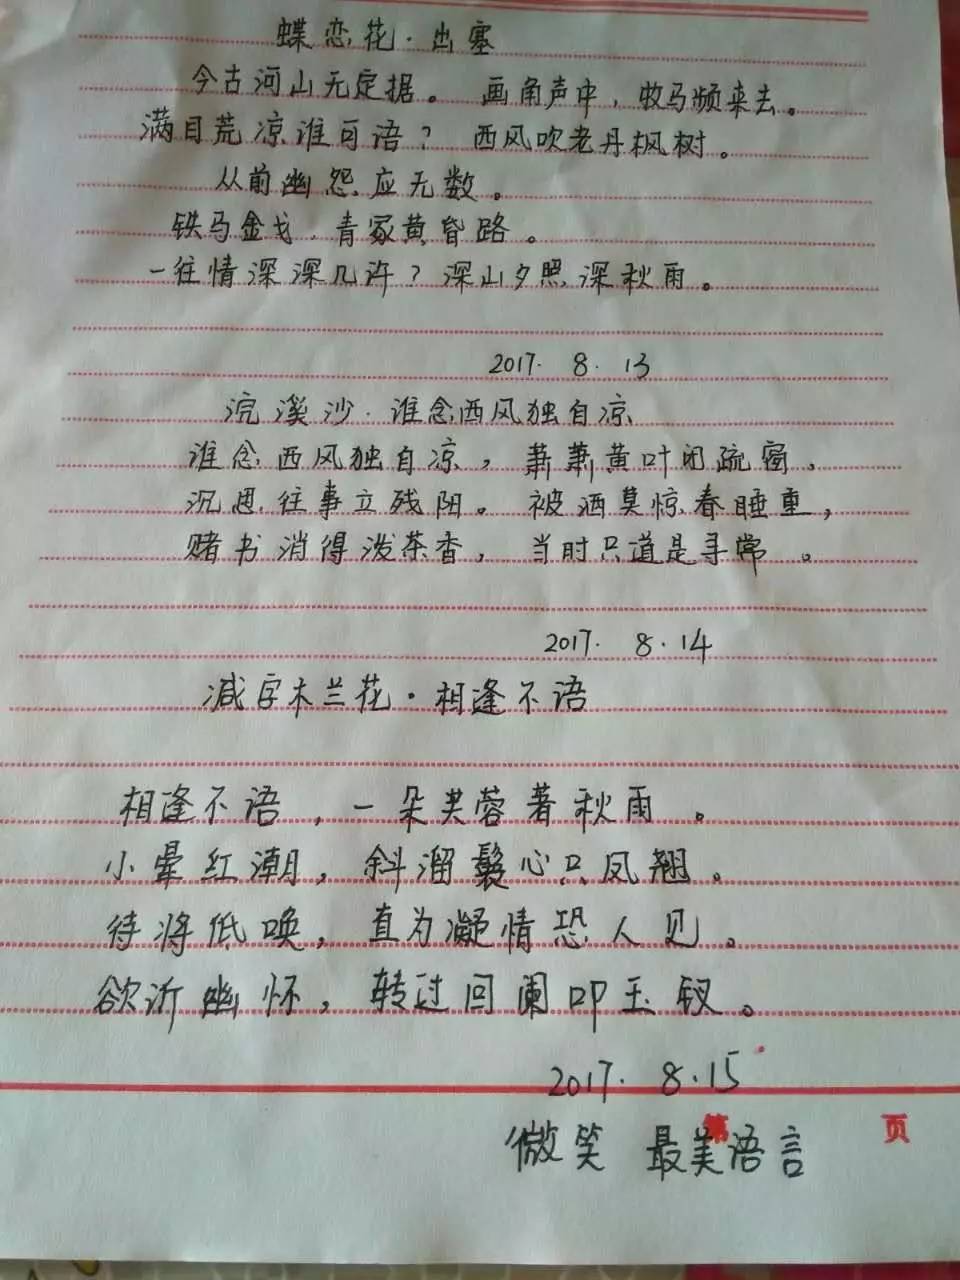 蝶恋花·出塞
今古河山无定据。画角声中，牧马频来去。
满目荒凉谁可语？西风吹老丹枫树。
从前幽怨应无数。
铁马金戈，青冢黄昏路。
一往情深深几许？深山夕照深秋雨。
2017.8.13
浣溪沙·谁念西风独自凉
谁念西风独自凉，萧萧黄叶闭疏窗，
沉思往事立残阳。被酒莫惊春睡重，
赌书消得泼茶香，当时只道是寻常。
2017.8.14
减字木兰花·相逢不语
相逢不语，一朵芙蓉著秋雨。
小晕红潮，斜溜鬟心只凤翘。
待将低唤，直为凝情恐人见。
欲诉幽怀，转过回阑叩玉钗。
2017.8.15
第 页
微笑 最美语言